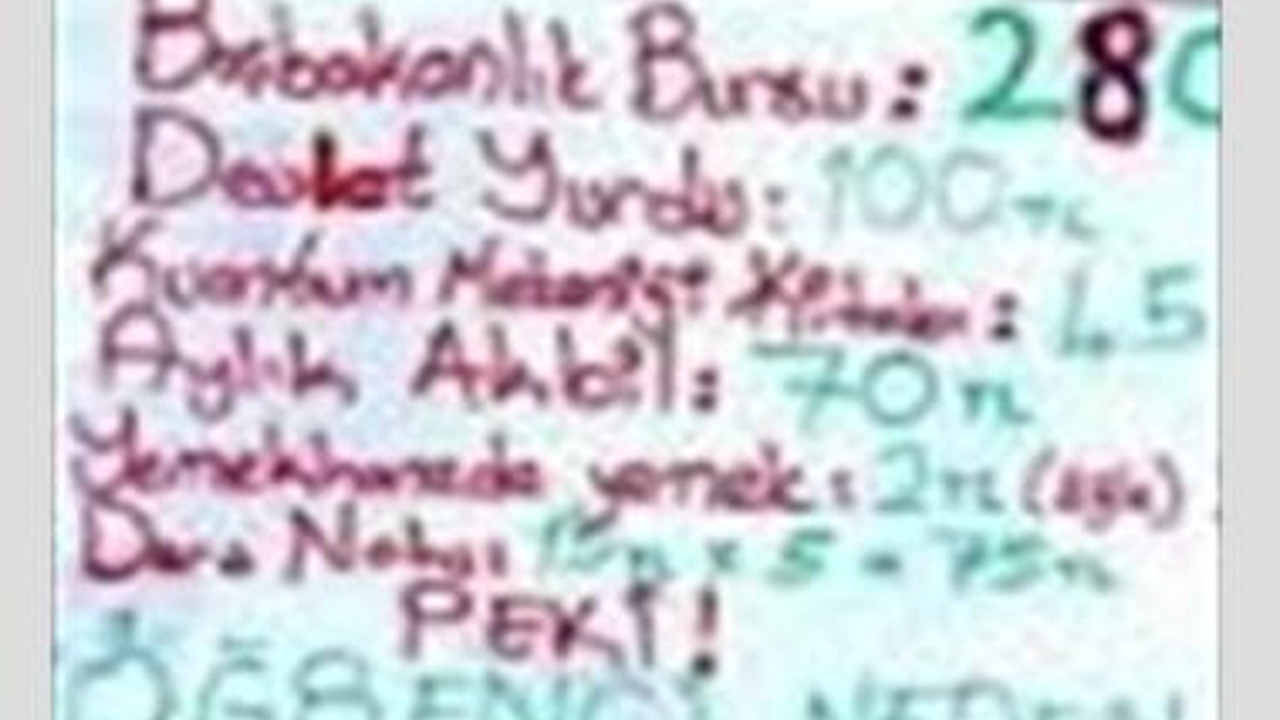 Başbakanlık Bursu: 280
Devlet Yurdu: 100 TL
Kuantum Mekaniği Kitabı: 45
Aylık Akbil: 70 TL
Yemekhanede yemek: 2 TL (öğle)
Ders Notu: 15 TL x 5 = 75 TL
PEKİ!
ÖĞRENCİ NEDEN